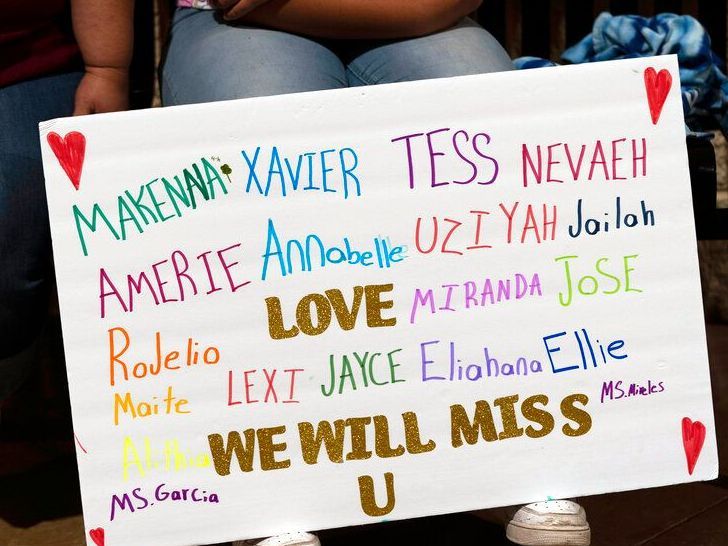 MAKENNA XAVIER TESS NEVAEH
AMERIE Annabelle UZIYAH Jailah
LOVE MIRANDA JOSE
Rojelio LEXI JAYCE Eliahana Ellie
Maite
Alithia WE WILL MISS MS. Mireles
MS. Garcia U